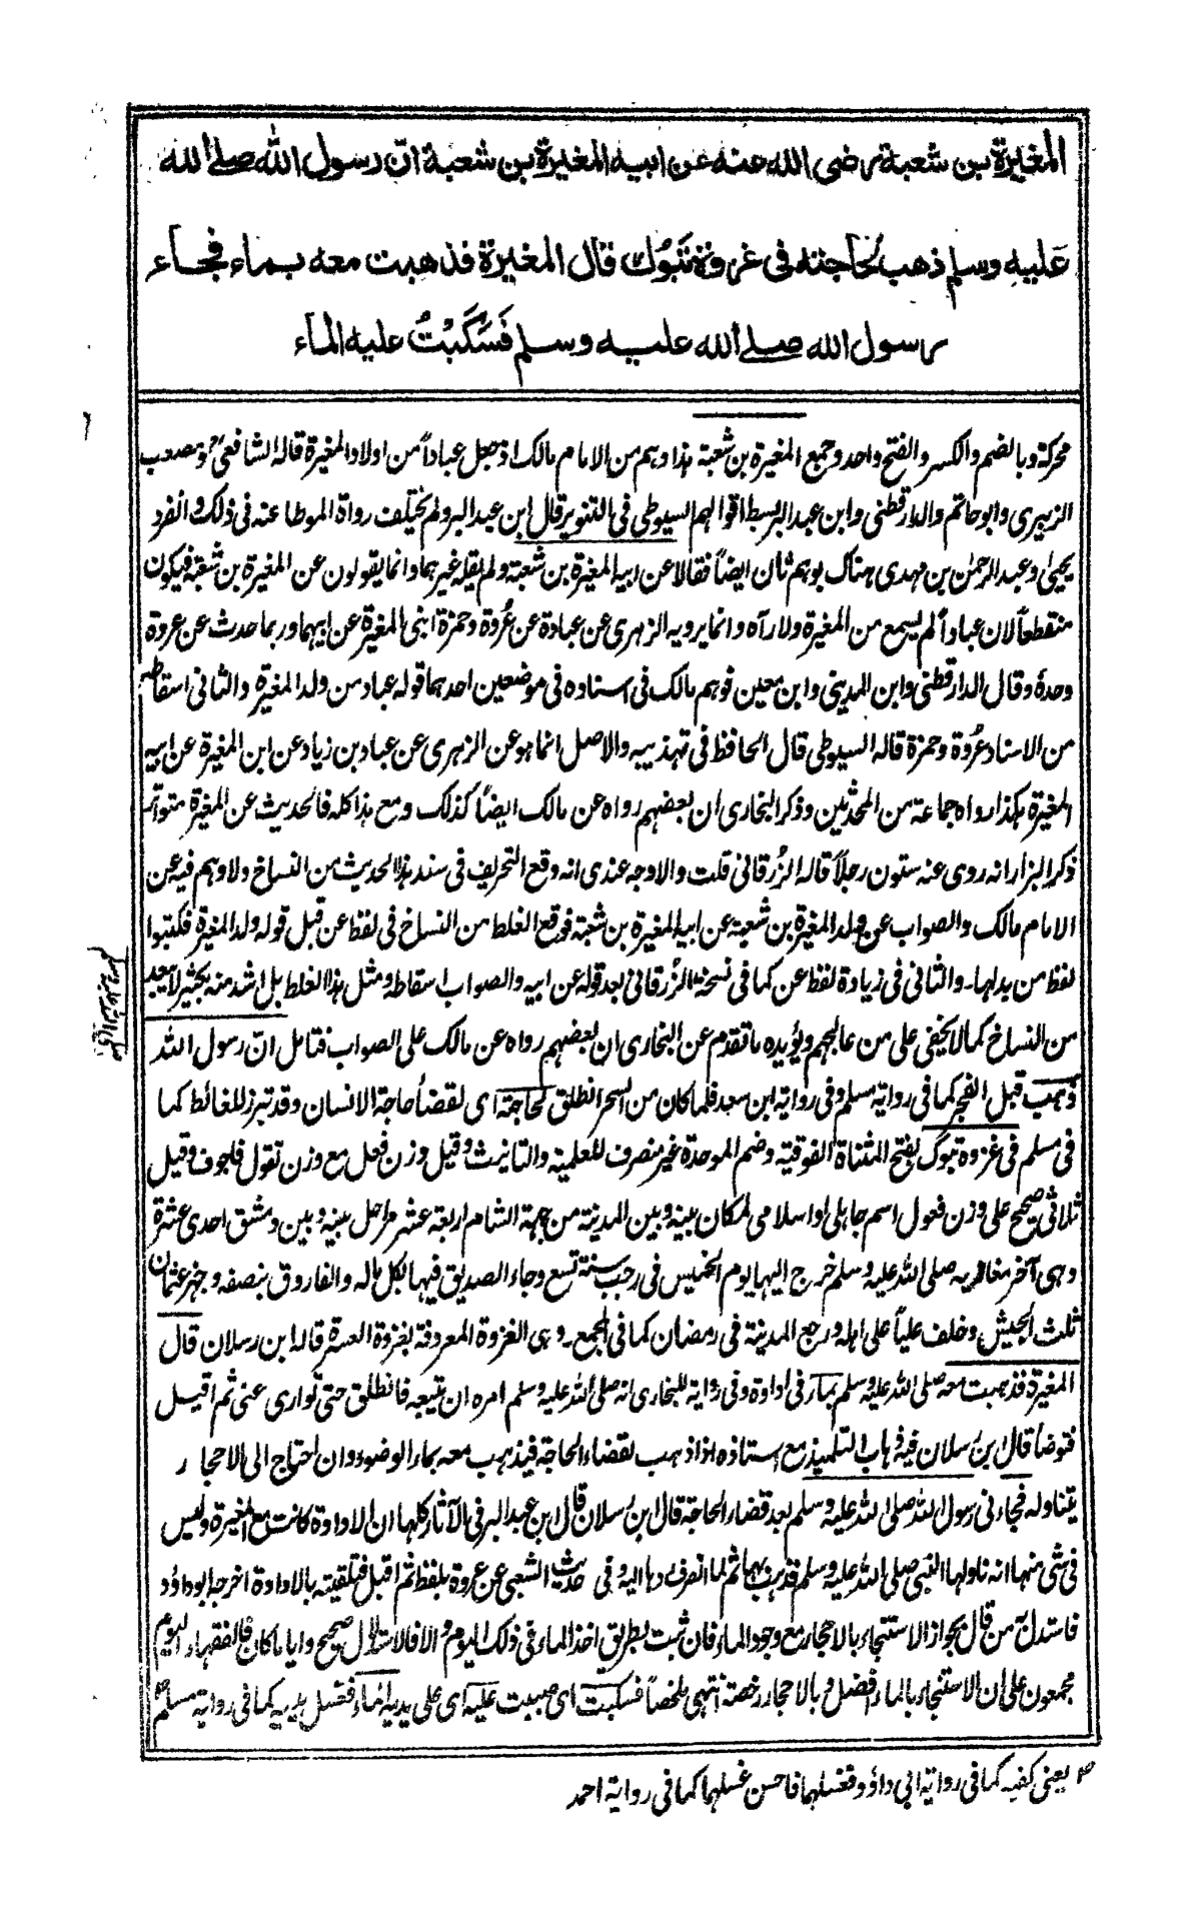 المغيرة بن شعبة رضى الله عنه عن ابيه المغيرة بن شعبة انّ رسول الله صلے الله
عليه وسلم ذهب لحاجته فى غزوة تبوك قال المغيرة فذهبت معه بماء فجاء
رسول الله صلے الله عليه وسلم فسكبت عليه الماء
محركة وبالضم والكسر والفتح واحد وجمع المغيرة بن شعبة هذا وهم من الامام مالك اذ جعل عباداً من اولاد المغيرة قاله الشافعى ومصعب
الزبيرى وابوحاتم والدارقطنى وابن عبد البر بسط اقوالهم السيوطى فى التنوير قال ابن عبد البر ولم يختلف رواة الموطا عنه فى ذلك وانفرد
يحيىٰ وعبد الرحمٰن بن مهدى هناك بوهم ثان ايضاً فقالا عن ابيه المغيرة بن شعبة ولم يقله غيرهما وانما يقولون عن المغيرة بن شعبة فيكون
منقطعاً لان عباداً لم يسمع من المغيرة ولا رآه وانما يرويه الزهرى عن عبادة عن عُروة وحمزة ابنى المغيرة عن ابيهما وربما حدث عن عروة
وحدة وقال الدارقطنى وابن المدينى وابن معين فوهم مالك فى اسناده فى موضعين احدهما قوله عباد من ولد المغيرة والثانى اسقاطه
من الاسناد عُروة وحمزة قاله السيوطى قال الحافظ فى تهذيبه والاصل انما هو عن الزهرى عن عباد بن زياد عن ابن المغيرة عن ابيه
المغيرة هكذا رواه جماعة من المحدثين وذكر البخارى ان بعضهم رواه عن مالك ايضاً كذلك ومع هذا كله فالحديث عن المغيرة متواتر
ذكر البزار انه روى عنه ستون رجلاً قاله الزُرقانى قلت والاوجه عندى انه وقع التحريف فى سند هٰذا الحديث من النساخ ولا وهم فيه عن
الامام مالك والصواب عن ولد المغيرة بن شعبة عن ابيه المغيرة بن شعبة فوقع الغلط من النساخ فى لفظ عن قبل قوله ولد المغيرة فكتبوا
لفظ من بدلها۔ والثانى فى زيادة لفظ عن كما فى نسخة الزُرقانى بعد قوله عن ابيه والصواب اسقاطه ومثل هذا الغلط بل اشد منه بكثير لا يبعد
من النساخ كما لا يخفى على من عالجهم ويؤيده ما تقدم عن البخارى ان بعضهم رواه عن مالك على الصواب فتامل انّ رسول الله
ذهب قبل الفجر كما فى رواية مسلم وفى رواية ابن سعد فلما كان من السحر انطلق لحاجته اى لقضاء حاجة الانسان وقد تبرز للغائط كما
فى مسلم فى غزوة تبوك بفتح المثناة الفوقية وضم الموحدة غير منصرف للعلمية والتانيث وقيل وزن فعل مع وزن تقول فاجوف وقيل
ثلاثى صحيح على وزن فعول اسم جاهلى او اسلامى لمكان بينه وبين المدينة من جهة الشام اربعة عشر مراحل بينه وبين دمشق احدى عشرة
وهى آخر مغازيه صلى الله عليه وسلم خرج اليها يوم الخميس فى رجب سنة تسع وجاء الصديق فيها بكل ماله والفاروق بنصفه وجهز عثمان
ثلث الجيش وخلف علياً على اهله ورجع المدينة فى رمضان كما فى المجمع۔ وهى الغزوة المعروفة بغزوة العسرة قاله ابن رسلان قال
المغيرة فذهبت معه صلى الله عليه وسلم بماء فى اداوة وفى رواية للبخارى انه صلى الله عليه وسلم امره ان يتبعه فانطلق حتى توارى عنى ثم اقبل
فتوضا قال ابن رُسلان فيه ذهاب التلميذ مع استاذه اذا ذهب لقضاء الحاجة فيذهب معه بماء الوضوء وان احتاج الى الاحجار
يتناوله فجاء نى رسول الله صلى الله عليه وسلم بعد قضاء الحاجة قال ابن رُسلان قال ابن عبد البر فى الآثار كلها ان الاداوة كانت مع المغيرة وليس
فى شى منها انه ناولها النبى صلى الله عليه وسلم فذهب بها ثم لما انصرف ردها اليه وفى حديث الشعبى عن عروة بلفظ ثم اقبل فتلقيته بالاداوة اخرجه ابوداؤد
فاستدل به من قال بجواز الاستنجاء بالاحجار مع وجود الماء فان ثبت بطريق اخذ الماء فى ذلك اليوم والا فالاستدلال صحيح وايا ما كان فالفقهاء اليوم
مجمعون على ان الاستنجاء بالماء افضل وبالاحجار رخصة انتهى ملخصاً فسكبت اى صببت عليه اى على يديه الماء فغسل يديه كما فى رواية مسلم
يعنى كفيه كما فى رواية ابى داؤد وغسلهما فاحسن غسلهما كما فى رواية احمد